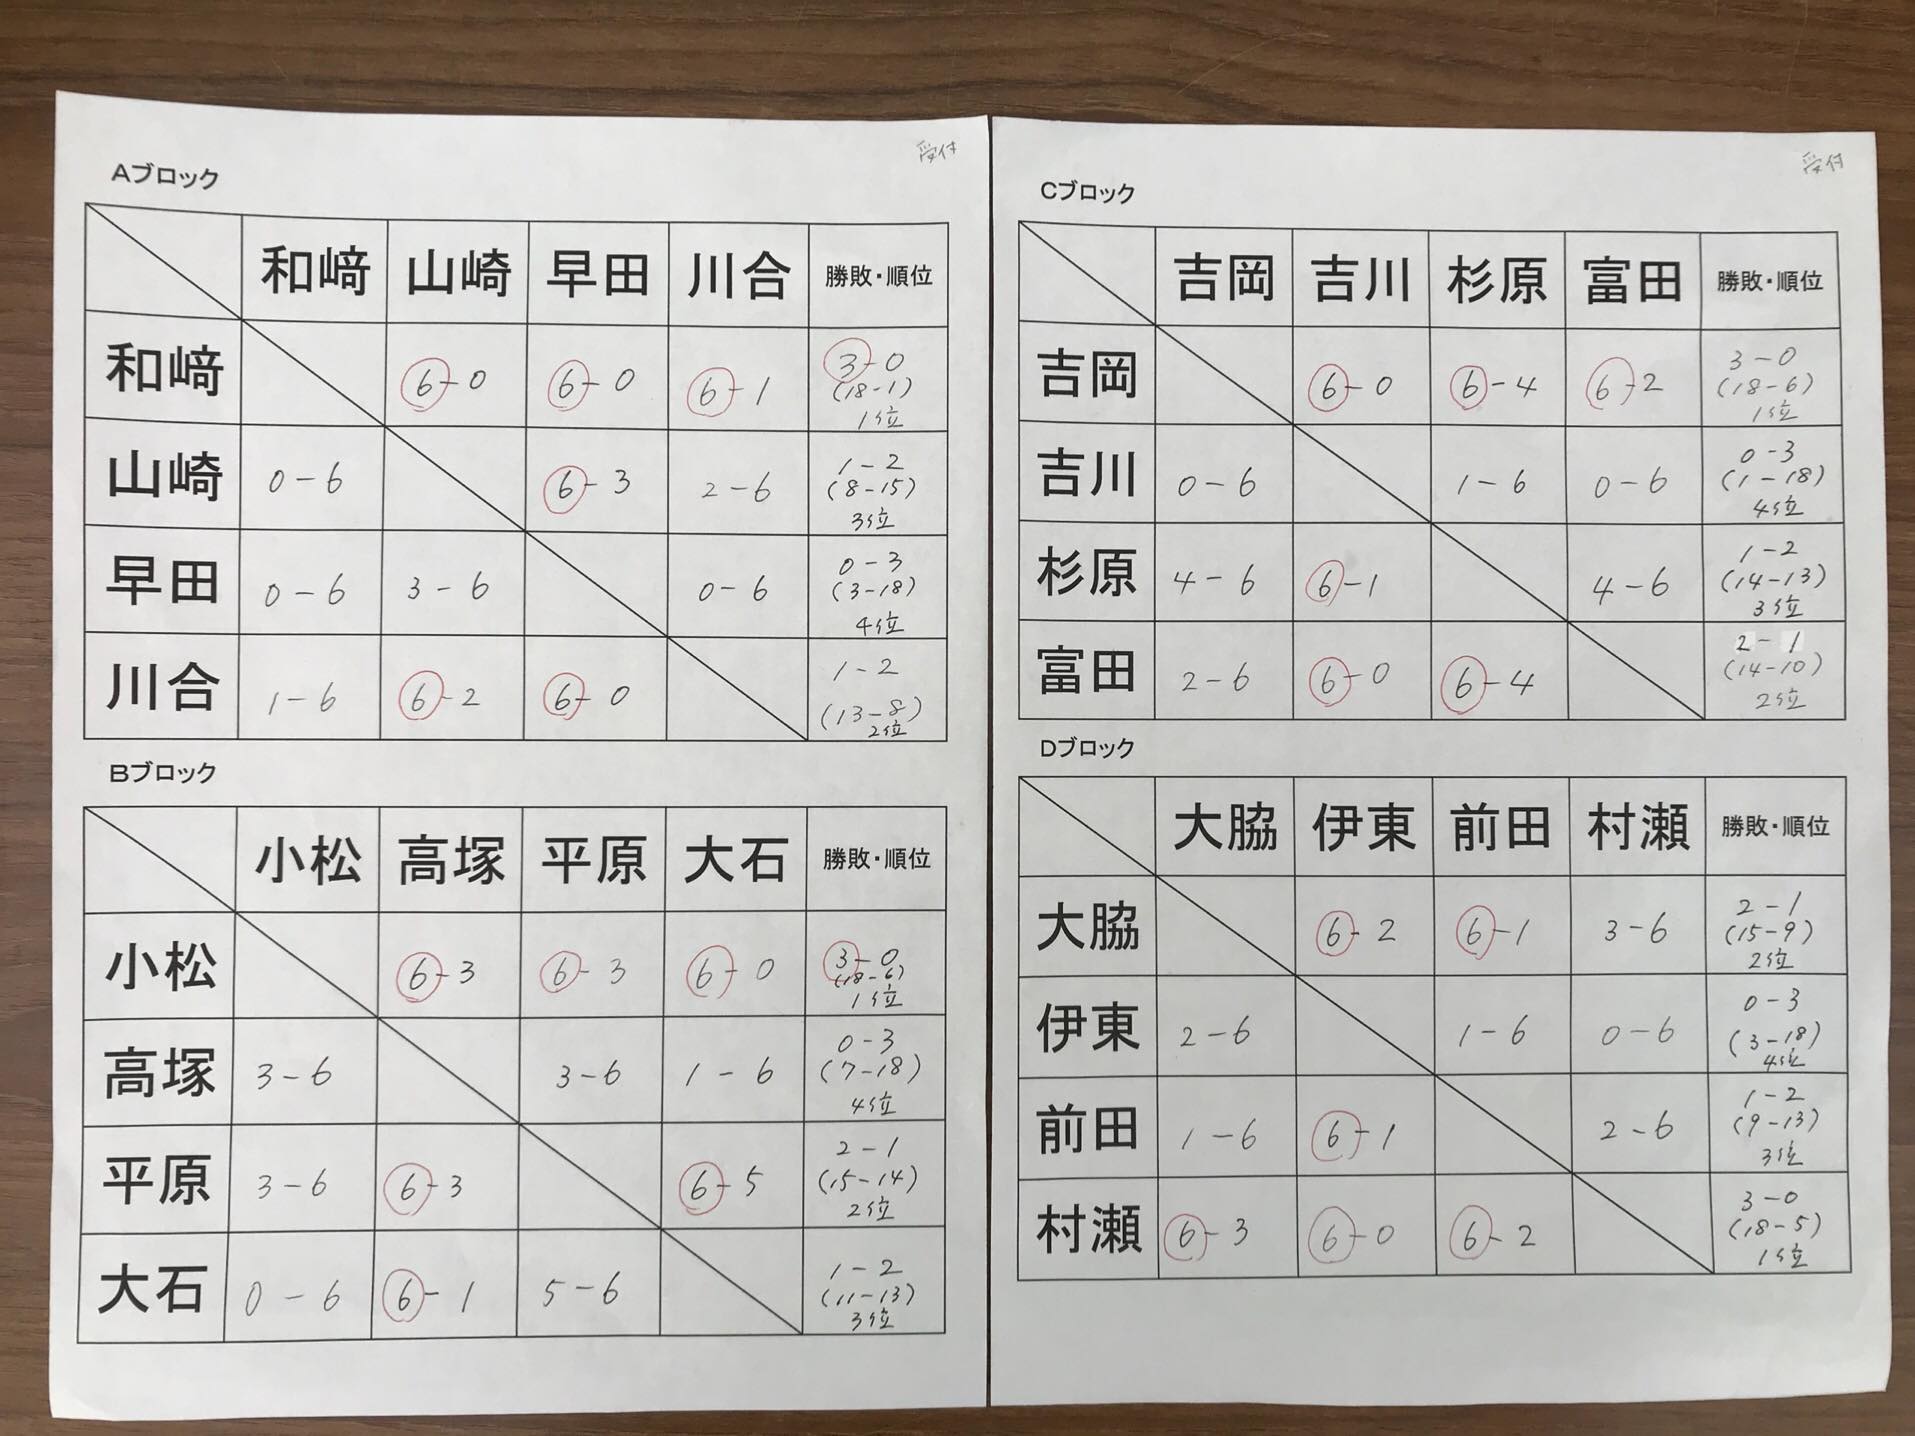 受付
Aブロック
和﨑 山崎 早田 川合 勝敗・順位
和﨑 6-0 6-0 6-1 3-0
(18-1)
1位
山崎 0-6 6-3 2-6 1-2
(8-15)
3位
早田 0-6 3-6 0-6 0-3
(3-18)
4位
川合 1-6 6-2 6-0 1-2
(13-8)
2位
Bブロック
小松 高塚 平原 大石 勝敗・順位
小松 6-3 6-3 6-0 3-0
(18-6)
1位
高塚 3-6 3-6 1-6 0-3
(7-18)
4位
平原 3-6 6-3 6-5 2-1
(15-14)
2位
大石 0-6 6-1 5-6 1-2
(11-13)
3位
受付
Cブロック
吉岡 吉川 杉原 富田 勝敗・順位
吉岡 6-0 6-4 6-2 3-0
(18-6)
1位
吉川 0-6 1-6 0-6 0-3
(1-18)
4位
杉原 4-6 6-1 4-6 1-2
(14-13)
3位
富田 2-6 6-0 6-4 2-1
(14-10)
2位
Dブロック
大脇 伊東 前田 村瀬 勝敗・順位
大脇 6-2 6-1 3-6 2-1
(15-9)
2位
伊東 2-6 1-6 0-6 0-3
(3-18)
4位
前田 1-6 6-1 2-6 1-2
(9-13)
3位
村瀬 6-3 6-0 6-2 3-0
(18-5)
1位